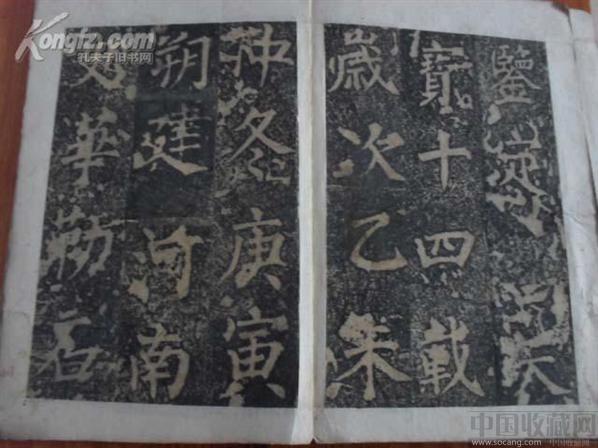 鑒 天
寶十四載
歲次乙未
仲冬庚寅
朔建河南
史華勒石
Kongfz.com
孔夫子旧书网
中国收藏网
www.socang.com 中国收藏网